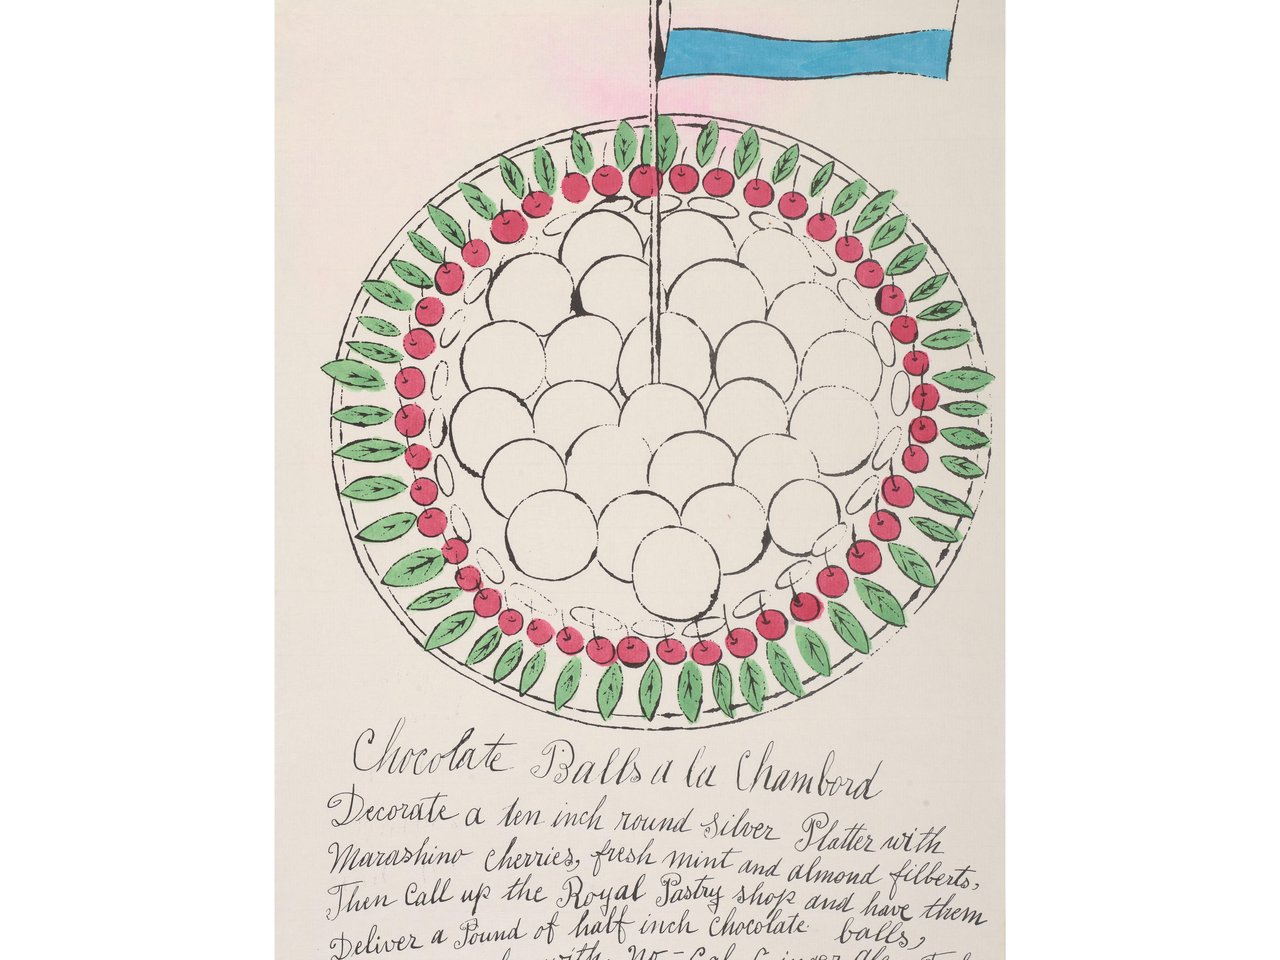 Chocolate Balls a la Chambord
Decorate a ten inch round silver Platter with
Marashino cherries, fresh mint and almond filberts,
Then Call up the Royal Pastry shop and have them
Deliver a Pound of half inch chocolate balls,
with no-Cal Ginger Ale